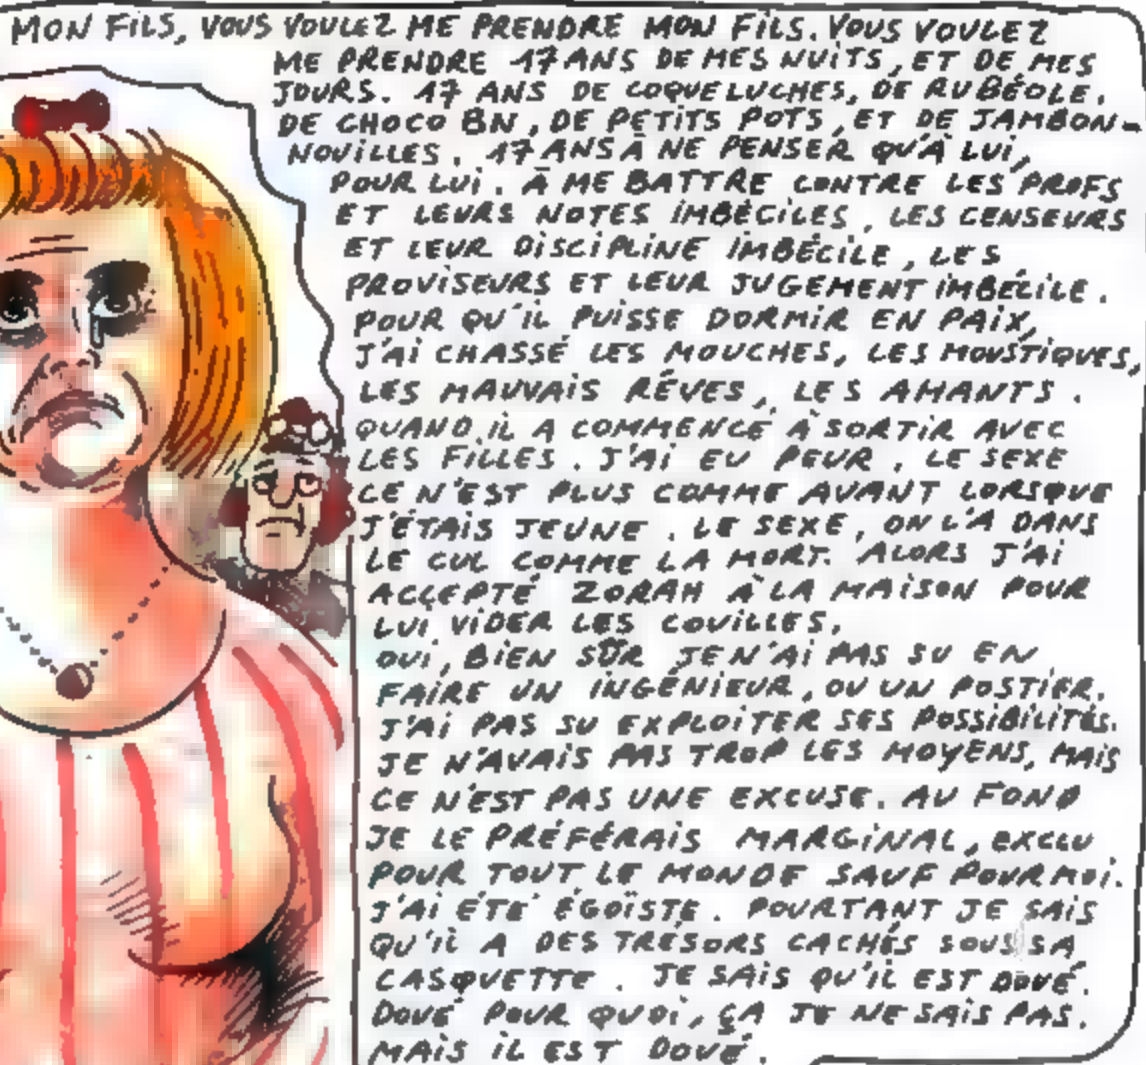 MON FILS, VOUS VOULEZ ME PRENDRE MON FILS. VOUS VOULEZ
ME PRENDRE 17 ANS DE MES NUITS, ET DE MES
JOURS. 17 ANS DE COQUELUCHES, DE RUBÉOLE.
DE CHOCO BN, DE PETITS POTS, ET DE JAMBON-
NOUILLES. 17 ANS À NE PENSER QU'À LUI,
POUR LUI. À ME BATTRE CONTRE LES PROFS
ET LEURS NOTES IMBÉCILES, LES CENSEURS
ET LEUR DISCIPLINE IMBÉCILE, LES
PROVISEURS ET LEUR JUGEMENT IMBÉCILE.
POUR QU'IL PUISSE DORMIR EN PAIX,
J'AI CHASSÉ LES MOUCHES, LES MOUSTIQUES,
LES MAUVAIS RÊVES, LES AMANTS.
QUAND IL A COMMENCÉ À SORTIR AVEC
LES FILLES. J'AI EU PEUR. LE SEXE
CE N'EST PLUS COMME AVANT LORSQUE
J'ÉTAIS JEUNE. LE SEXE, ON L'A DANS
LE CUL COMME LA MORT. ALORS J'AI
ACCEPTÉ ZORAH À LA MAISON POUR
LUI VIDER LES COUILLES.
OUI, BIEN SÛR JE N'AI PAS SU EN
FAIRE UN INGÉNIEUR, OU UN POSTIER.
J'AI PAS SU EXPLOITER SES POSSIBILITÉS.
JE N'AVAIS PAS TROP LES MOYENS, MAIS
CE N'EST PAS UNE EXCUSE. AU FOND
JE LE PRÉFÉRAIS MARGINAL, EXCLU
POUR TOUT LE MONDE SAUF POUR MOI.
J'AI ÉTÉ ÉGOÏSTE. POURTANT JE SAIS
QU'IL A DES TRÉSORS CACHÉS SOUS SA
CASQUETTE. JE SAIS QU'IL EST DOUÉ.
DOUÉ POUR QUOI, ÇA JE NE SAIS PAS.
MAIS IL EST DOUÉ.